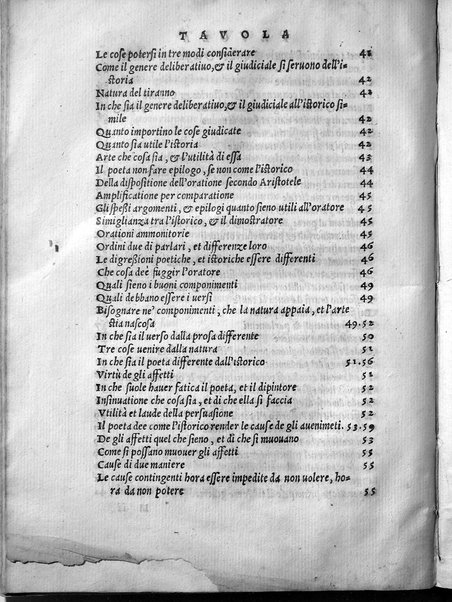 TAVOLA
Le cose potersi in tre modi considerare 41
Come il genere deliberatiuo, & il giudiciale si seruono dell'i-
storia 42
Natura del tiranno 42
In che sia il genere deliberatiuo, & il giudiciale all'istorico si-
mile 42
Quanto importino le cose giudicate 42
Quanto sia utile l'istoria 42
Arte che cosa sia, & l'utilità di essa 43
Il poeta non fare epilogo, se non come l'istorico 44
Della dispositione dell'oratione secondo Aristotele 44
Amplificatione per comparatione 45
Gli spessi argomenti, & epilogi quanto sieno utili all'oratore 45
Simiglianza tra l'istorico, & il dimostratore 45
Orationi ammonitorie 45
Ordini due di parlari, et differenze loro 46
Le digreßioni poetiche, et istoriche essere differenti 46
Che cosa deè fuggir l'oratore 46
Quali sieno i buoni componimenti 49
Quali debbano essere i uersi 49
Bisognare ne' componimenti, che la natura appaia, et l'arte
stia nascosa 49.52
In che sia il uerso dalla prosa differente 50
Tre cose uenire dalla natura 51
In che sia il poeta differente dall'istorico 51.56
Virtù de gli affetti 52
In che suole hauer fatica il poeta, et il dipintore 52
Insinuatione che cosa sia, et di che ella si faccia 52
Vtilità et laude della persuasione 52
Il poeta dee come l'istorico render le cause de gli auenimēti 53.59
De gli affetti quel che sieno, et di che si muouano 53
Come si possano muouer gli affetti 54
Cause di due maniere 55
Le cause contingenti hora essere impedite da non uolere, ho-
ra da non potere 55